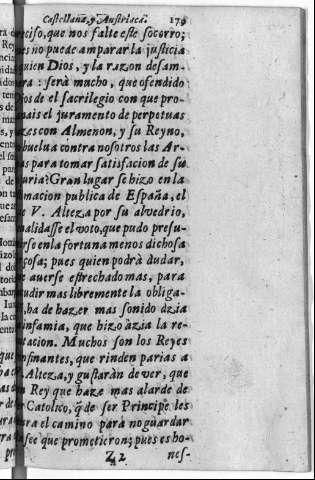 Castellana, y Austriaca. 179
ciso, que nos falte este socorro;
es no puede amparar la justicia
quien Dios, y la razon desam-
ra: serà mucho, que ofendido
Dios de el sacrilegio con que pro-
anais el juramento de perpetuas
zes con Almenon, y su Reyno,
buelua contra nosotros las Ar-
as para tomar satisfacion de su
uria? Gran lugar se hizo en la
macion publica de España, el
e V. Alteza por su alvedrio,
validasse el voto, que pudo presu-
rse en la fortuna menos dichosa
çosa; pues quien podrà dudar,
e averse estrechado mas, para
udir mas libremente la obliga-
, ha de hazer mas sonido àzia
infamia, que hizo àzia la re-
tacion. Muchos son los Reyes
nfinantes, que rinden parias a
. Alteza, y gustaràn de ver, que
n Rey que haze mas alarde de
r Catolico, q̃ de ser Principe les
ra el camino para no guardar
a fee que prometieron; pues es ho-
Z 2 nes-